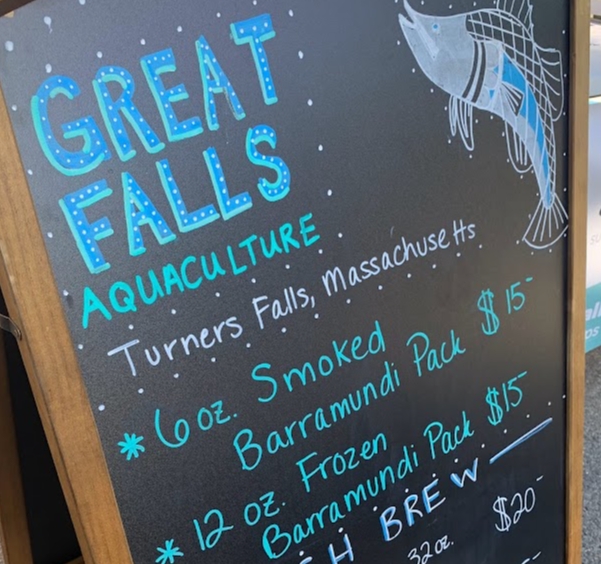 GREAT
FALLS
AQUACULTURE
Turners Falls, Massachusetts
* 6 oz. Smoked
Barramundi Pack $15-
* 12 oz. Frozen
Barramundi Pack $15-
BREW
32 oz. $20-